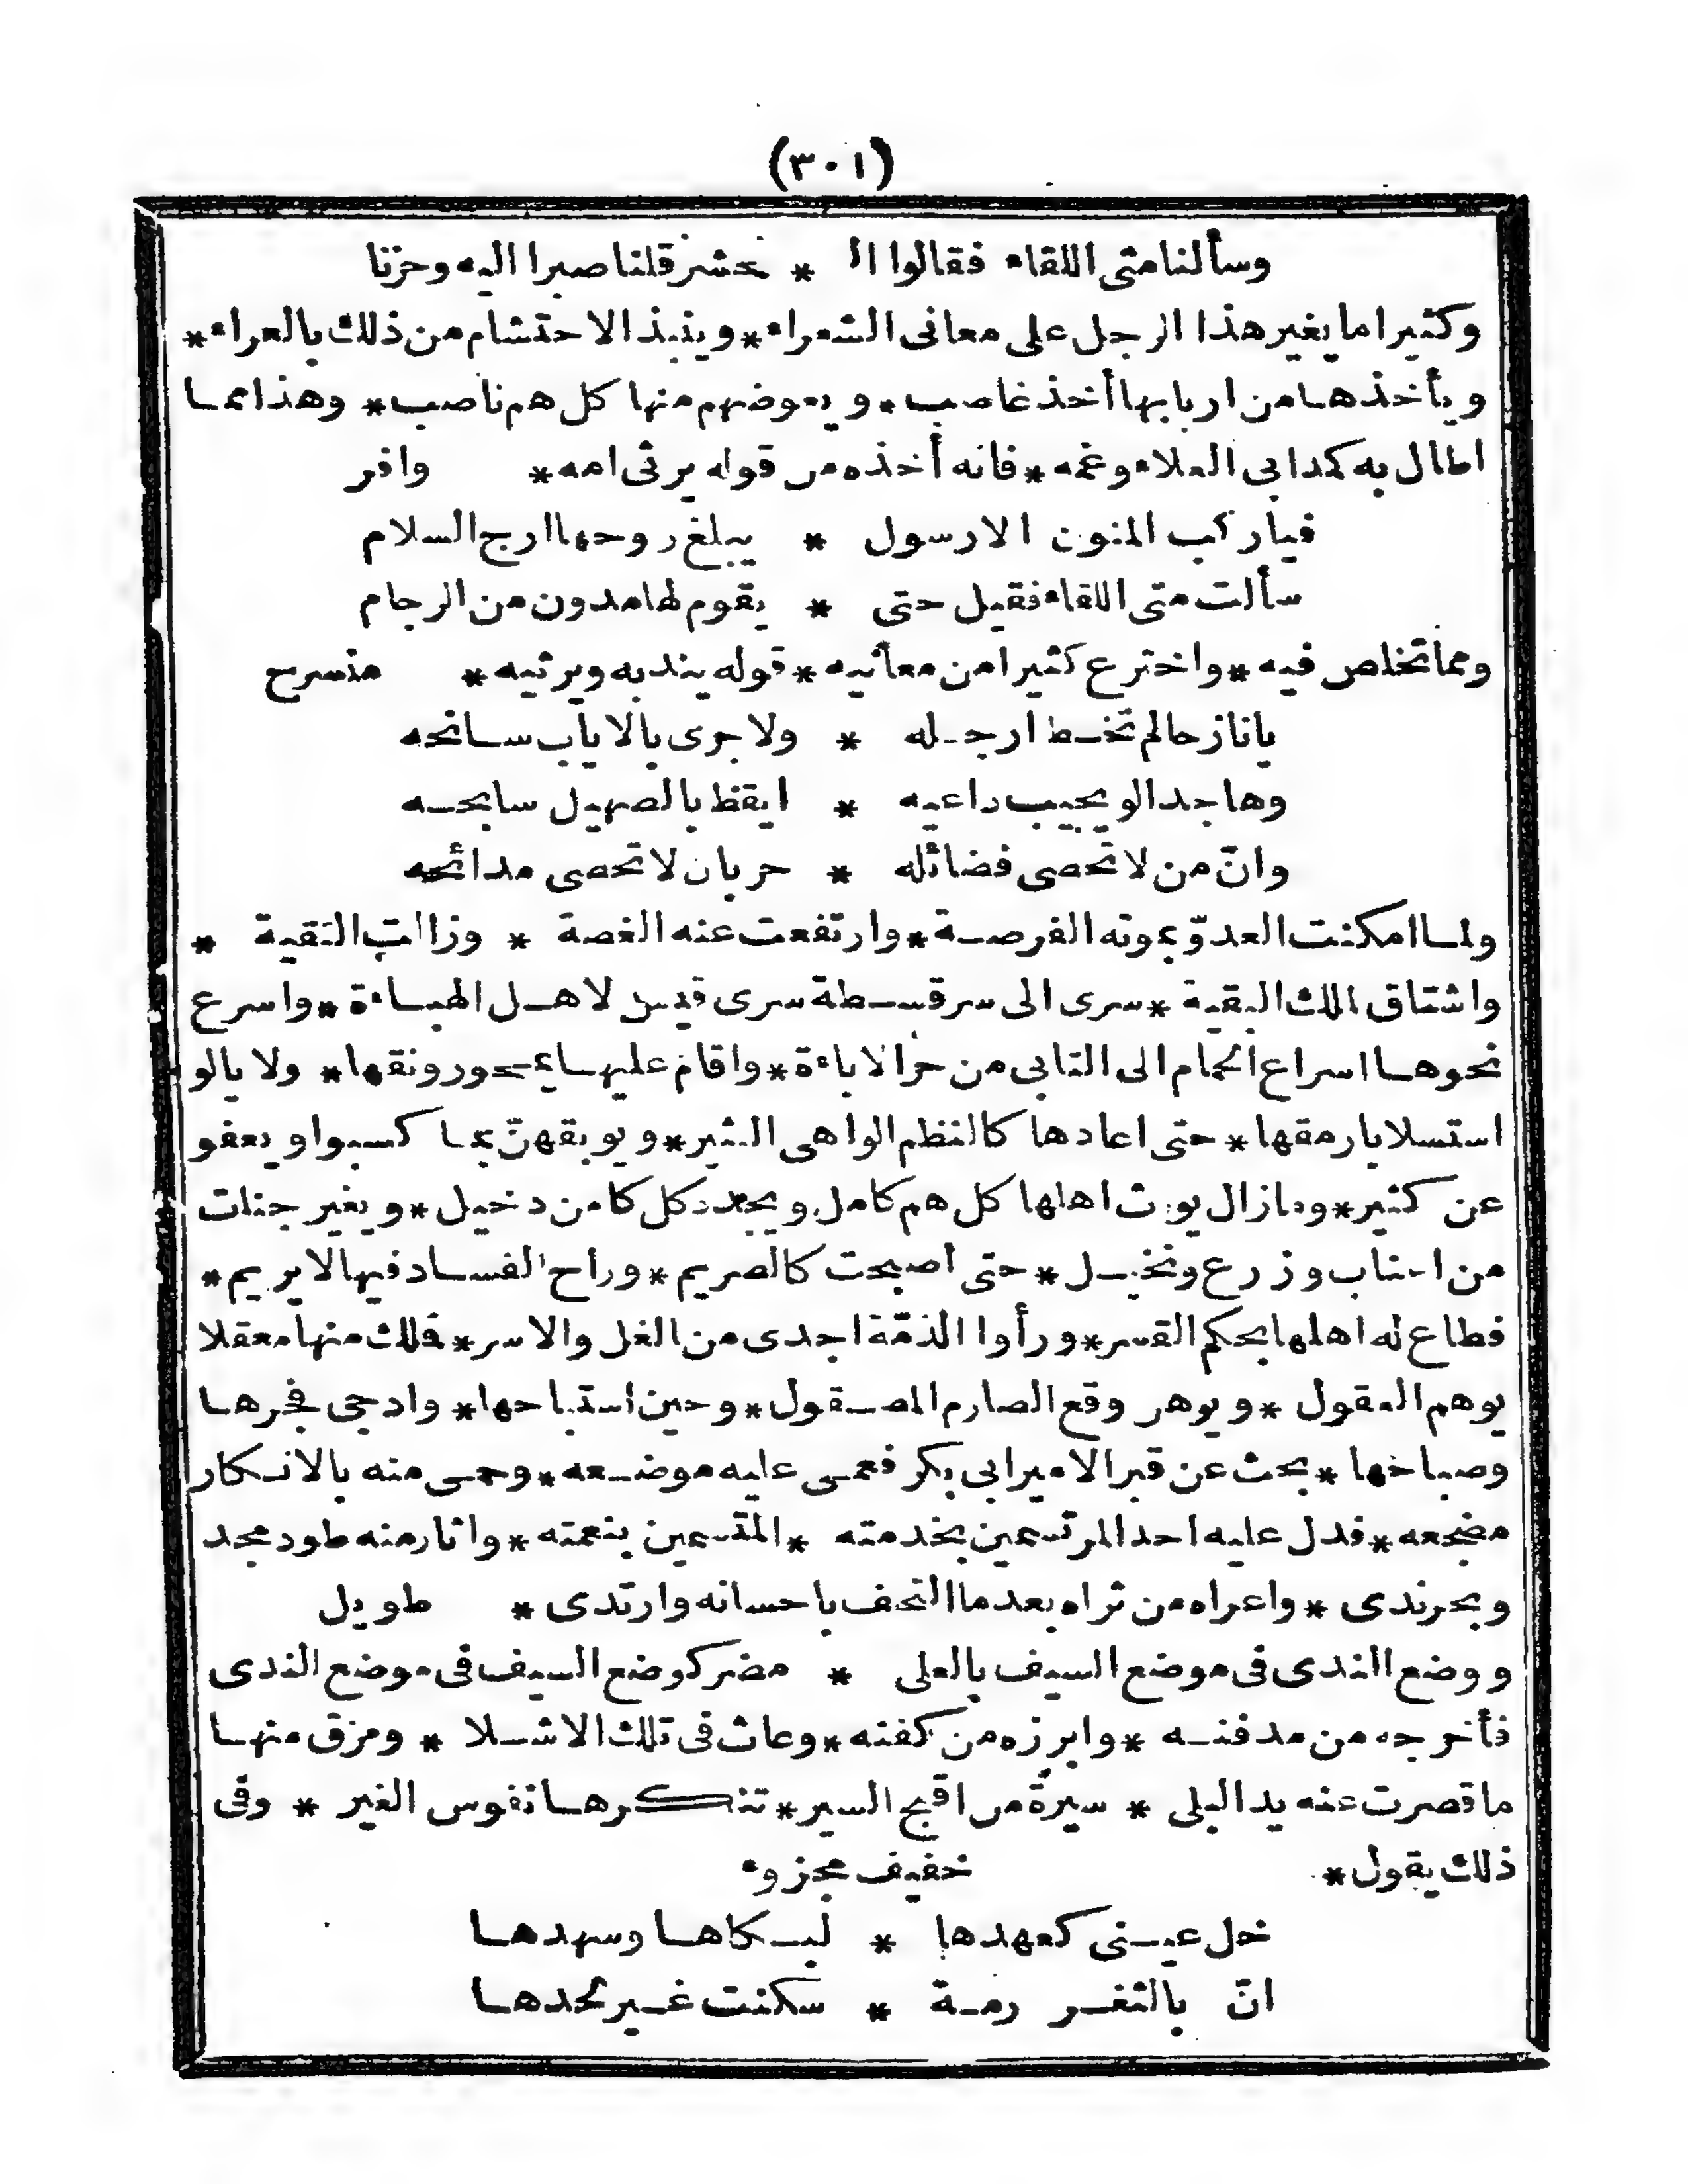 (٣٠١)
وسألنا متى اللقاء فقالوا ال * حشر قلنا صبرا اليه وحزنا
وكثيرا ما يغير هذا الرجل على معانى الشعراء * وينبذ الاحتشام من ذلك بالعراء *
ويأخذها من اربابها أخذ غاصب * ويعوضهم منها كل هم ناصب * وهذا مما
اطال به كمد ابى العلاء وغمه * فانه أخذه من قوله يرثى امه * وافر
فيا ركب المنون الا رسول * يبلغ روحها ارج السلام
سألت متى اللقاء فقيل حتى * يقوم لها مدون من الرجام
ومما تخلص فيه * واخترع كثيرا من معانيه * قوله يندبه ويرثيه * منسرح
يا نازحا لم تخط ارجله * ولا جرى بالاياب سانحه
وهاجدا لو يجيب داعيه * ايقظ بالصهيل سابحه
وانّ من لا تحصى فضائله * حر بان لا تحصى مدائحه
ولما امكنت العدوّ بموته الفرصة * وارتفعت عنه الغصة * وزالت التقية *
واشتاق الملك البقية * سرى الى سرقسطة سرى قيس لاهل الهباءة * واسرع
نحوها اسراع الحمام الى التابى من حرّ الاباءة * واقام عليها يمحو رونقها * ولا يالو
استسلابا رمقها * حتى اعادها كالنظم الواهى النثير * ويوبقهنّ بما كسبوا ويعفو
عن كثير * وما زال يورث اهلها كل هم كامل ويجدد كل كامن دخيل * ويغير جنات
من اعناب وزرع ونخيل * حتى اصبحت كالصريم * وراح الفساد فيها لا يريم *
فطاع له اهلها بحكم القسر * ورأوا الذمّة اجدى من الغل والاسر * فملك منها معقلا
يوهم العقول * ويوهر وقع الصارم المصقول * وحين استباحها * وادجى فجرها
وصباحها * بحث عن قبر الامير ابى بكر فعمى عليه موضعه * وحمى منه بالانكار
مضجعه * فدل عليه احد المرتسمين بخدمته * المتسمين بنعمته * واثار منه طود مجد
وبحر ندى * واعراه من ثراه بعد ما التحف باحسانه وارتدى * طويل
ووضع الندى فى موضع السيف بالعلى * مضر كوضع السيف فى موضع الندى
فأخرجه من مدفنه * وابرزه من كفنه * وعاث فى تلك الاشلا * ومزق منها
ما قصرت عنه يد البلى * سيرة من اقبح السير * تنكرها نفوس الغير * وفى
ذلك يقول * خفيف مجزوء
خل عينى كعهدها * لبكاها وسهدها
انّ بالثغر رمة * سكنت غير لحدها